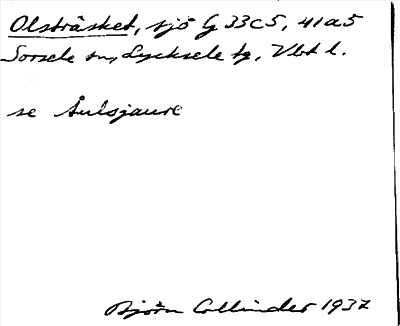 Olsträsket, sjö G 33c5, 41a5
Sorsele sn, Lycksele tg, Vbt l.
se Åulsjaure
Björn Collinder 1937